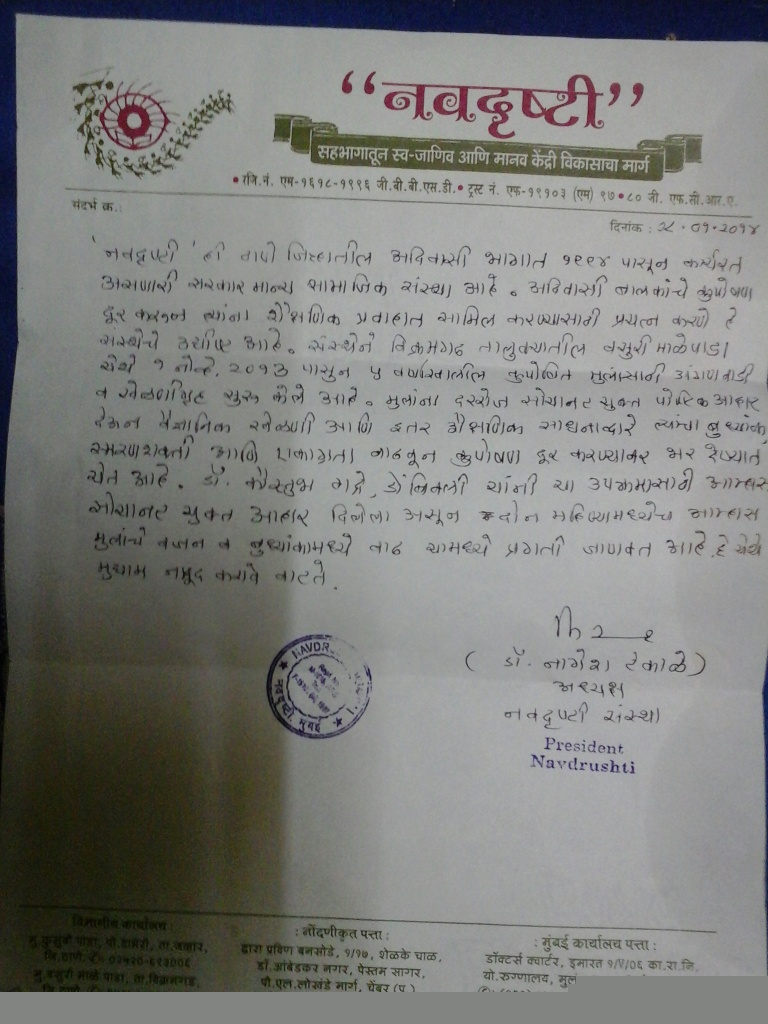 “नवदृष्टी”
सहभागातून स्व-जाणिव आणि मानव केंद्री विकासाचा मार्ग
• रजि.नं. एम-१६१८-१९९६ जी.बी.बी.एस.डी. • ट्रस्ट नं. एफ-१९१०३ (एम) ९७ • ८० जी. एफ.सी.आर.ए.
संदर्भ क्र.:
दिनांक : २८.०१.२०१४
'नवदृष्टी' ही ठाणे जिल्ह्यातील आदिवासी भागात १९९४ पासून कार्यरत
असणारी सरकार मान्य सामाजिक संस्था आहे. आदिवासी बालकांचे कुपोषण
दूर करून त्यांना शैक्षणिक प्रवाहात सामिल करण्यासाठी प्रयत्न करणे हे
संस्थेचे उद्दीष्ट आहे. संस्थेने विक्रमगढ तालुक्यातील वसुरी माळेपाडा
येथे १ नोव्हे. २०१३ पासुन ५ वर्षाखालील कुपोषित मुलांसाठी अंगणवाडी
व खेळणीगृह सुरू केले आहे. मुलांना दररोज सोयानट युक्त पौष्टिक आहार
देऊन वैज्ञानिक खेळणी आणि इतर शैक्षणिक साधनाद्वारे त्यांचा बुध्यांक,
स्मरणशक्ती आणि एकाग्रता वाढवून कुपोषण दूर करण्यावर भर देण्यात
येत आहे. डॉ. कौस्तुभ गद्रे, डोंबिवली यांनी या उपक्रमासाठी आम्हास
सोयानट युक्त आहार दिलेला असून दोन महिण्यामध्येच आम्हास
मुलांचे वजन व बुध्यांकामध्ये वाढ यामध्ये प्रगती जाणवत आहे हे येथे
मुद्दाम नमूद करावे वाटते.
(डॉ. नागेश टेकाळे)
अध्यक्ष
नवदृष्टी संस्था
President
Navdrushti
NAVDR
नवदृष्टी, मुंबई
विभागीय कार्यालय :
मु.कुसुबी पाडा, पो.डामेरी, ता.जव्हार,
जि.ठाणे.
मु.वसुरी माळे पाडा, ता.विक्रमगड,
जि.ठाणे.
: नोंदणीकृत पत्ता :
द्वारा प्रविण बनसोडे, १/१७, शेळके चाळ,
डॉ.आंबेडकर नगर, पेस्तम सागर,
पी.एल.लोखंडे मार्ग, चेंबूर (प.)
: मुंबई कार्यालय पत्ता :
डॉक्टर्स क्वार्टर, इमारत १/४/०६ का.रा.वि.
यो.रुग्णालय,